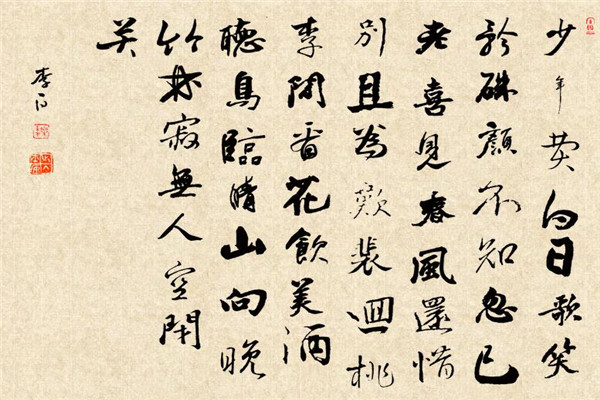 少年费白日歌笑
矜硃顏不知忽已
老喜見春風還惜
別且為歡裴迴桃
李閒看花飲美酒
聽鳥臨晴山向晚
竹林寂無人空閉
关
李